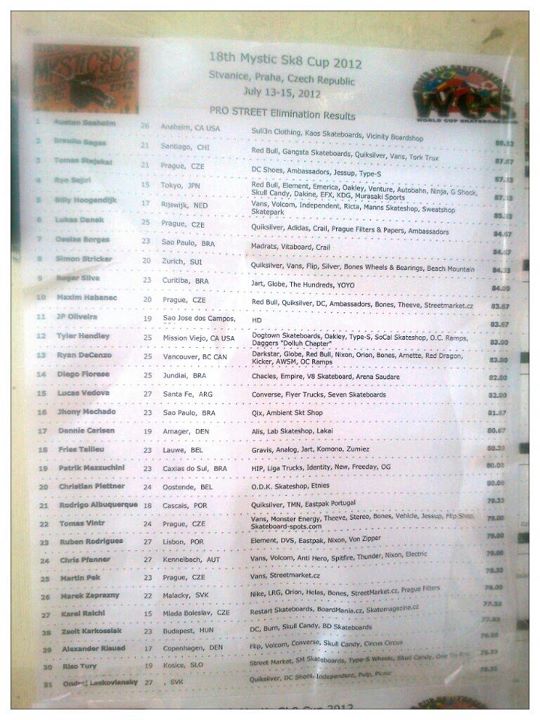 MYSTIC SK8 CUP 2012
WORLD CUP SKATEBOARDING
18th Mystic Sk8 Cup 2012
Stvanice, Praha, Czech Republic
July 13-15, 2012
PRO STREET Elimination Results
1 Austen Seaholm 26 Anaheim, CA USA Suli3n Clothing, Kaos Skateboards, Vicinity Boardshop
2 21 Santiago, CHI Red Bull, Gangsta Skateboards, Quiksilver, Vans, Tork Trux
3 Tomas Stejskal 21 Prague, CZE DC Shoes, Ambassadors, Jessup, Type-S
4 Ryo Sejiri 15 Tokyo, JPN Red Bull, Element, Emerica, Oakley, Venture, Autobahn, Ninja, G Shock, Skull Candy, Dakine, EFX, KDG, Murasaki Sports
5 Billy Hoogendijk 17 Rijswijk, NED Vans, Volcom, Independent, Ricta, Manns Skateshop, Sweatshop Skatepark
6 Lukas Danek 25 Prague, CZE Quiksilver, Adidas, Crail, Prague Filters & Papers, Ambassadors 84.67
7 Borges 23 Sao Paulo, BRA Madrats, Vitaboard, Crail 84.67
8 Simon Stricker 20 Zurich, SUI Quiksilver, Vans, Flip, Silver, Bones Wheels & Bearings, Beach Mountain 84.33
9 Roger Silva 23 Curitiba, BRA Jart, Globe, The Hundreds, YOYO 84.00
10 Maxim Habanec 20 Prague, CZE Red Bull, Quiksilver, DC, Ambassadors, Bones, Theeve, Streetmarket.cz 83.67
11 JP Oliveira 19 Sao Jose dos Campos, HD 83.67
12 Tyler Hendley 25 Mission Viejo, CA USA Dogtown Skateboards, Oakley, Type-S, SoCal Skateshop, O.C. Ramps, Daggers "Dolluh Chapter" 83.00
13 Ryan DeCenzo 25 Vancouver, BC CAN Darkstar, Globe, Red Bull, Nixon, Orion, Bones, Arnette, Red Dragon, Kicker, AWSM, OC Ramps 83.00
14 Diego Fiorese 25 Jundiai, BRA Chacles, Empire, V8 Skateboard, Arena Saudare
15 Lucas Vedova 27 Santa Fe, ARG Converse, Flyer Trucks, Seven Skateboards 82.00
16 Jhony Machado 23 Sao Paulo, BRA Qix, Ambient Skt Shop 81.67
17 Dannie Carlsen 19 Amager, DEN Alis, Lab Skateshop, Lakai 80.67
18 Fries Taillieu 23 Lauwe, BEL Gravis, Analog, Jart, Komono, Zumiez 80.33
19 Patrik Mazzuchini 23 Caxias do Sul, BRA HIP, Liga Trucks, Identity, New, Freeday, OG
20 Christian Plettner 24 Oostende, BEL O.D.K. Skateshop, Etnies
21 Rodrigo Albuquerque 18 Cascais, POR Quiksilver, TMN, Eastpak Portugal 79.33
22 Tomas Vintr 24 Prague, CZE Vans, Monster Energy, Theeve, Stereo, Bones, Vehicle, Jessup, Flip Shop, Skateboard-spots.com 79.00
23 Ruben Rodrigues 27 Lisbon, POR Element, DVS, Eastpak, Nixon, Von Zipper 79.00
24 Chris Pfanner 27 Kennelbach, AUT Vans, Volcom, Anti Hero, Spitfire, Thunder, Nixon, Electric
25 Martin Pek 23 Prague, CZE Vans, Streetmarket.cz
26 Marek Zaprazny 22 Malacky, SVK Nike, LRG, Orion, Helas, Bones, StreetMarket.cz, Prague Filters
27 Karel Raichl 15 Mlada Boleslav, CZE Restart Skateboards, BoardMania.cz, Skatemagazine.cz
28 Zsolt Karkossiak 23 Budapest, HUN DC, Burn, Skull Candy, BD Skateboards
29 Alexander Risued 17 Copenhagen, DEN Flip, Volcom, Converse, Skull Candy, Circus Circus
30 Riso Tury 19 Kosice, SLO Street Market, SH Skateboards, Type-S Wheels, Skull Candy
31 Ondrej Laskovlensky 27 , SVK Quiksilver, DC Shoes, Independent, Pulp, Picnic
Sk8 Cup 2012